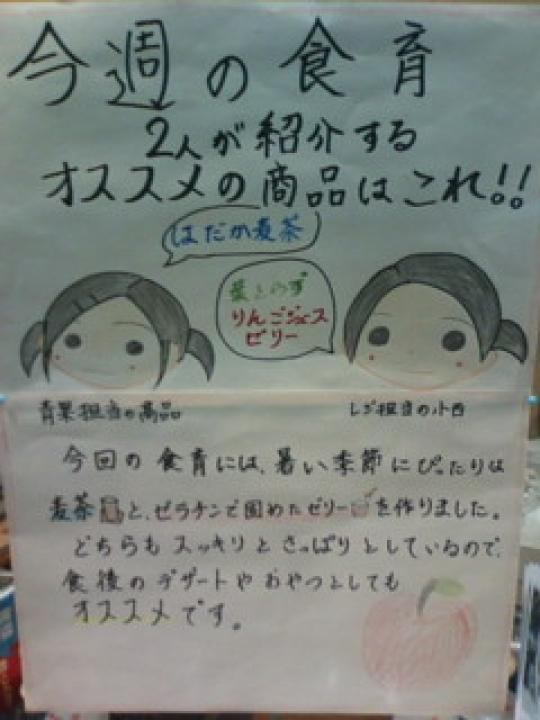 今週の食育
2人が紹介する
オススメの商品はこれ!!
はだか麦茶
葉とらず
りんごジュース
ゼリー
青果担当の高品
レジ担当の小西
今回の食育には、暑い季節にぴったりな
麦茶と、ゼラチンで固めたゼリーを作りました。
どちらもスッキリとさっぱりとしているので、
食後のデザートやおやつとしても
オススメです。